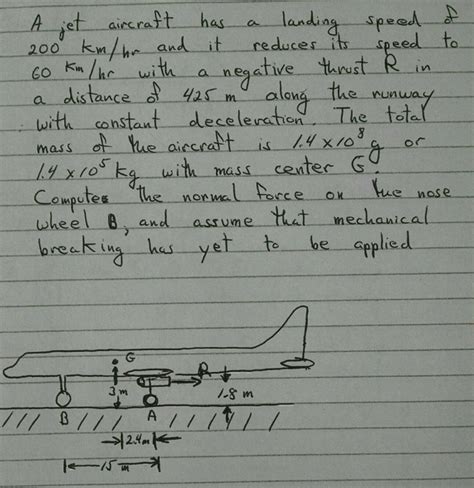 A jet aircraft has a landing speed of
200 km/hr and it reduces its speed to
60 km/hr with a negative thrust R in
a distance of 425 m along the runway
with constant deceleration. The total
mass of the aircraft is 1.4 x 10⁸ g or
1.4 x 10⁵ kg with mass center G.
Computes the normal force on the nose
wheel B, and assume that mechanical
breaking has yet to be applied
G
R
3m
1.8 m
B
A
2.4m
15 m